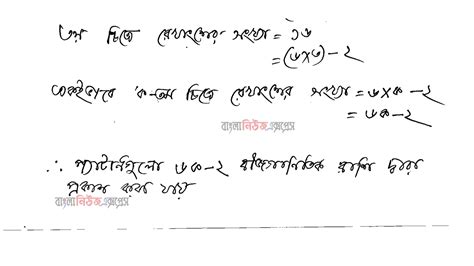 ৩য় চিত্রে রেখাংশের সংখ্যা = ১৬
= (৬×৩) - ২
একইভাবে ক-তম চিত্রে রেখাংশের সংখ্যা = ৬×ক - ২
= ৬ক - ২
বাংলা নিউজ এক্সপ্রেস
∴ প্যাটার্নগুলো ৬ক-২ বীজগাণিতিক রাশি দ্বারা
প্রকাশ করা যায়
বাংলা নিউজ এক্সপ্রেস